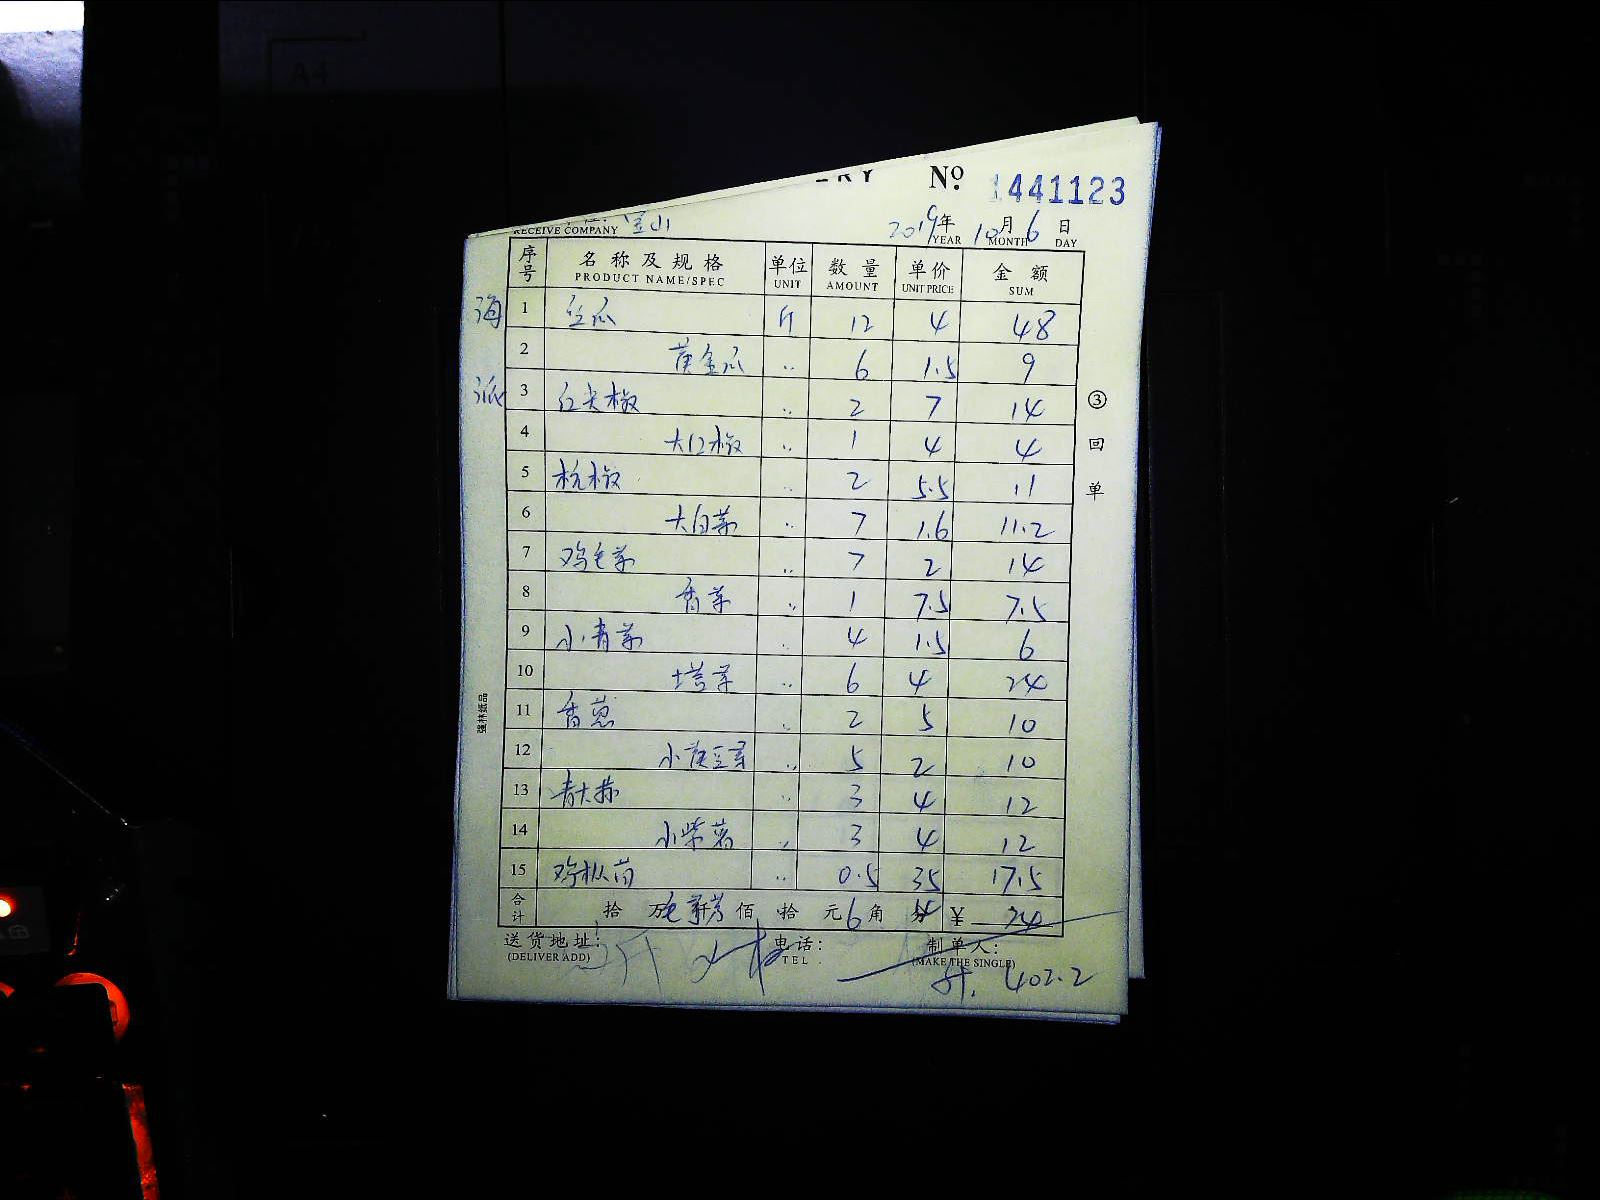 A4
ERY Nº 1441123
RECEIVE COMPANY 金山 2019年YEAR 10月MONTH 6日DAY
序号 名称及规格 PRODUCT NAME/SPEC 单位 UNIT 数量 AMOUNT 单价 UNIT PRICE 金额 SUM
海派
1 丝瓜 斤 12 4 48
2 黄金瓜 〃 6 1.5 9
3 红尖椒 〃 2 7 14
4 大红椒 〃 1 4 4
5 杭椒 〃 2 5.5 11
6 大白菜 〃 7 1.6 11.2
7 鸡毛菜 〃 7 2 14
8 香菜 〃 1 7.5 7.5
9 小青菜 〃 4 1.5 6
10 塔菜 〃 6 4 24
11 香葱 〃 2 5 10
12 小黄豆芽 〃 5 2 10
13 青大蒜 〃 3 4 12
14 小紫薯 〃 3 4 12
15 鸡枞菌 〃 0.5 35 17.5
合计 拾 万 毛菜 仟 佰 拾 元 6 角 分 4 ¥ 24
送货地址: (DELIVER ADD) 电话: TEL 制单人: (MAKE THE SINGLE)
402.2
③回单
强林纸品